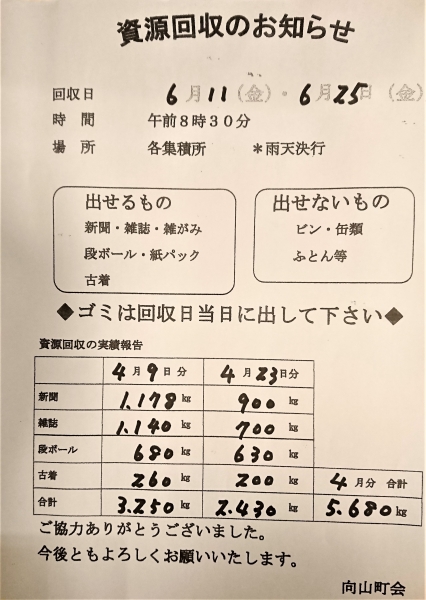 資源回収のお知らせ
回収日 6月11(金)・6月25日(金)
時間 午前8時30分
場所 各集積所 *雨天決行
出せるもの
新聞・雑誌・雑がみ
段ボール・紙パック
古着
出せないもの
ビン・缶類
ふとん等
◆ゴミは回収日当日に出して下さい◆
資源回収の実績報告
4月9日分 4月23日分
新聞 1.178kg 900kg
雑誌 1.140kg 700kg
段ボール 680kg 630kg
古着 260kg 200kg 4月分 合計
合計 3.250kg 2.430kg 5.680kg
ご協力ありがとうございました。
今後ともよろしくお願いいたします。
向山町会